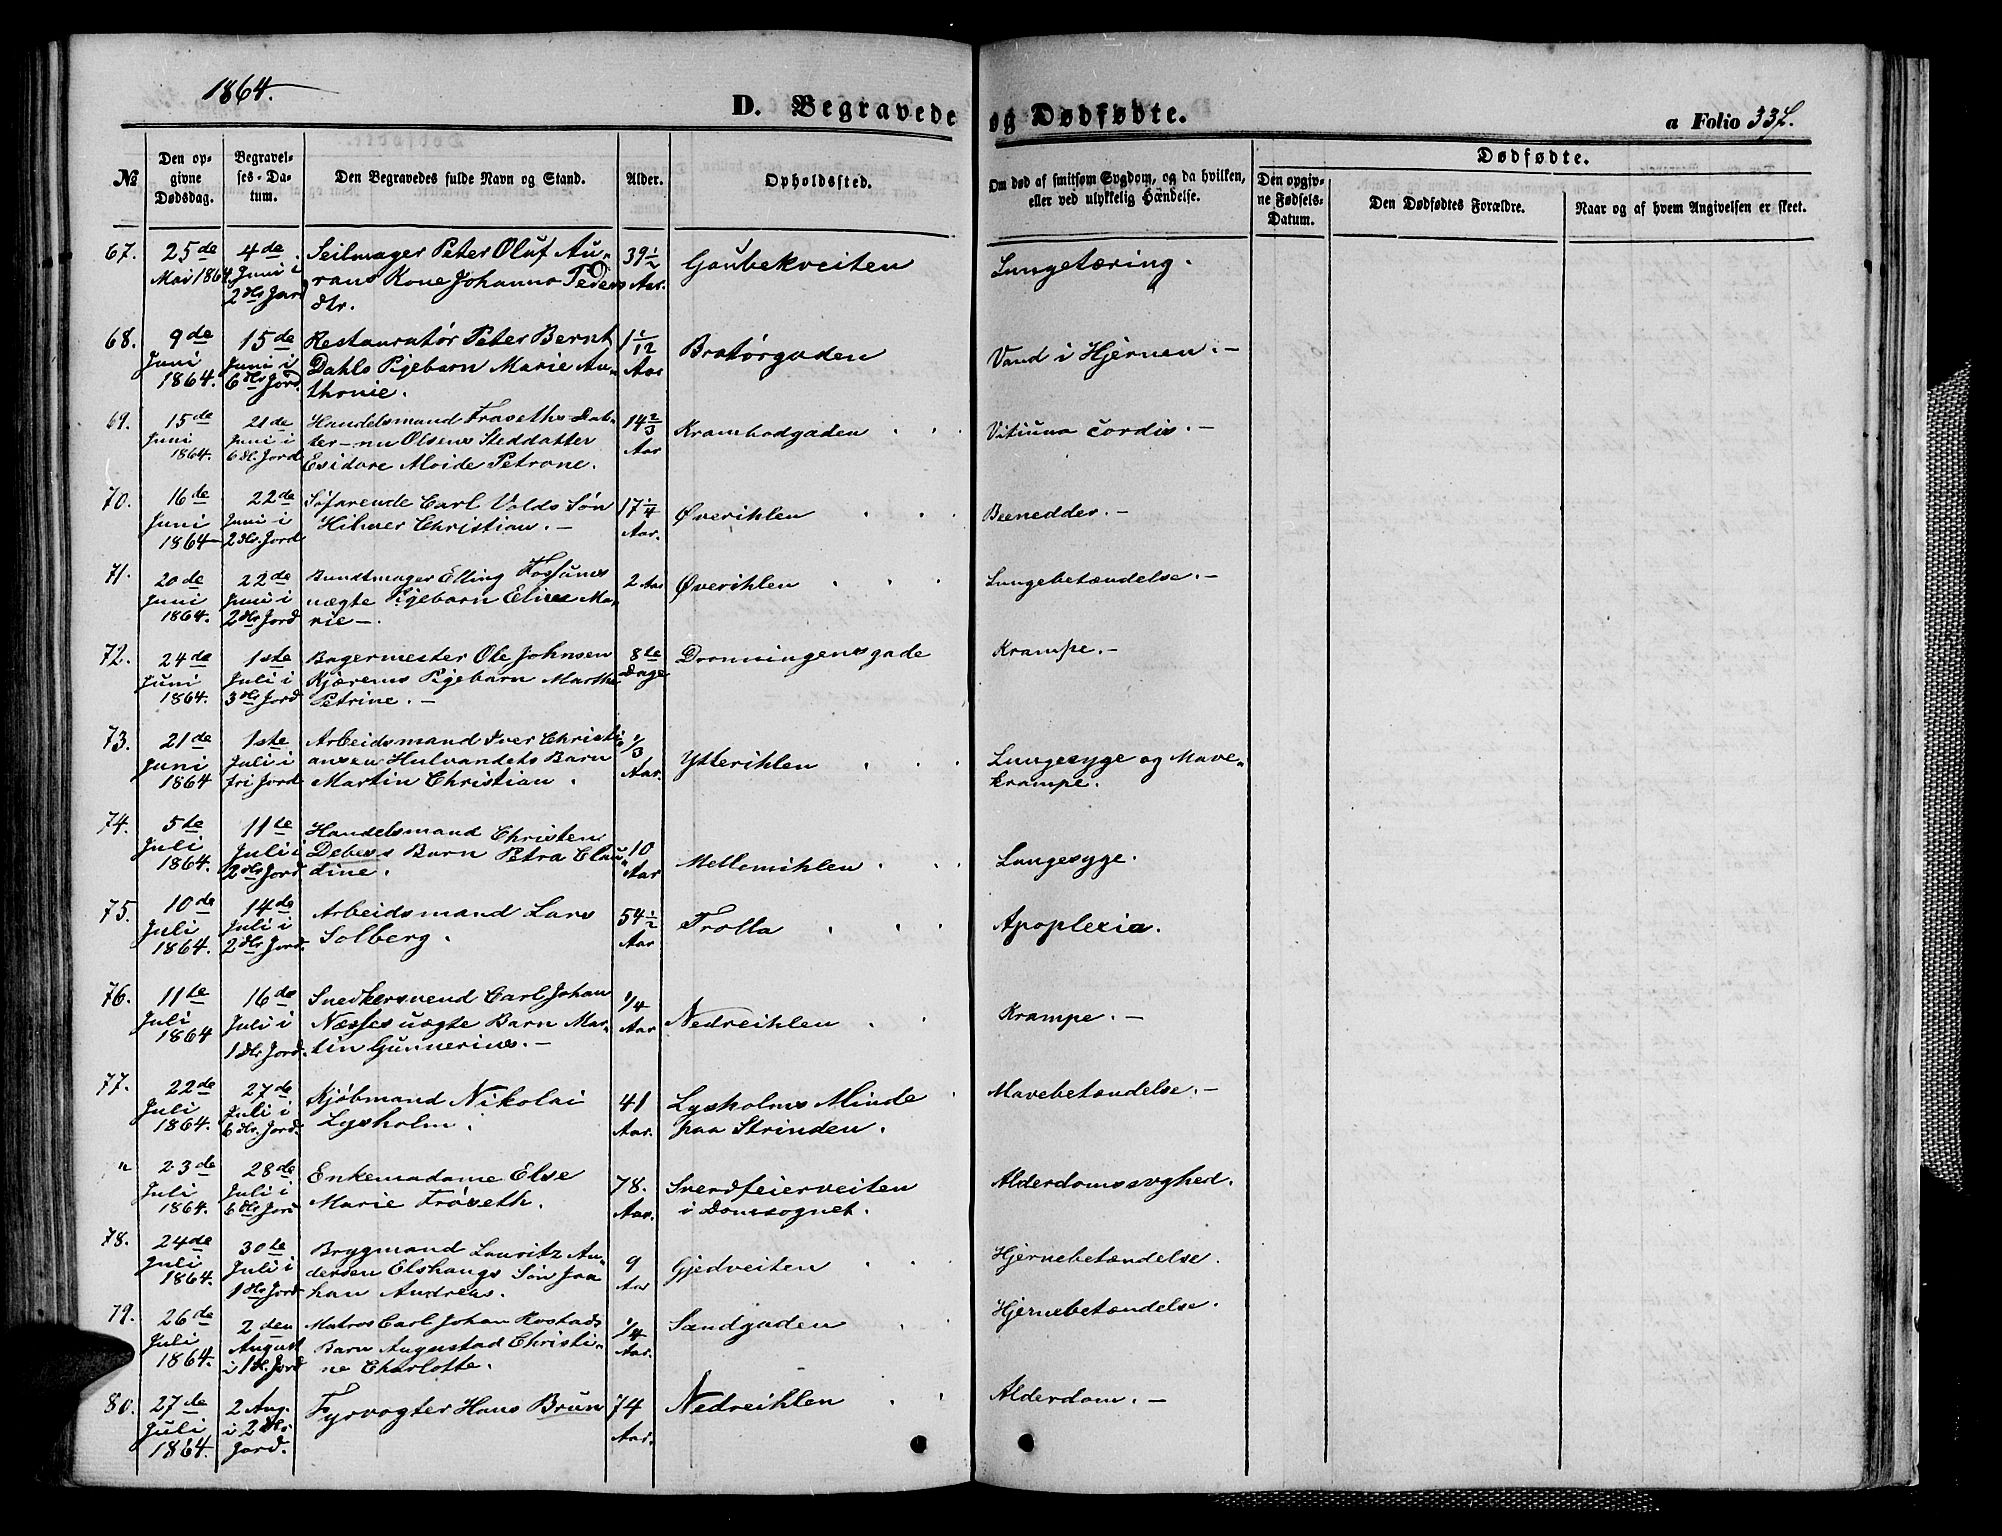 1864.
D. Begravede og Dødfødte.
a Folio 332.
№
Den opgivne Dødsdag.
Begravelses-Datum.
Den Begravedes fulde Navn og Stand.
Alder.
Opholdssted.
Om død af smitsom Sygdom, og da hvilken, eller ved ulykkelig Hændelse.
Dødfødte.
Den opgivne Fødsels-Datum.
Den Dødfødtes Forældre.
Naar og af hvem Angivelsen er skeet.
67. 25de Mai 1864. 4de Juni i 2 Kl. Jord
Seilmager Peter Oluf Au-
rans Kone Johanna Peders
dtr.
39 1/2 Aar. Gaubekveiten Lungetæring.
68. 9de Juni 1864. 15de Juni i 6 Kl. Jord.
Restauratør Peter Bernt
Dahls Pigebarn Marie An-
thonie.
1 1/12 Aar Bratørgaden Vand i Hjernen.-
69. 15de Juni 1864. 21de Juni i 6 Kl. Jord
Handelsmand Frøseths Dat-
ter-nu Olsens Steddatter
Esidore Aloide Petrone.
14 2/3 Aar Krambodgaden Vitiuna cordis.-
70. 16de Juni 1864 22de Juni i 2 Kl. Jord
Søfarende Carl Volds Søn
Hilmer Christian.-
17 1/4 Aar. Øverihlen Beenedder.-
71. 20de Juni 1864. 22de Juni i 2 Kl. Jord
Bundtmager Elling Fossums
uægte Pigebarn Elise Ma-
rie-.
2 Aar Øverihlen Lungebetændelse.-
72. 24de Juni 1864. 1ste Juli i 3 Kl. Jord
Bagermester Ole Johnsen
Kjærems Pigebarn Marthe
Petrine.-
8te Dage Dronningensgade Krampe.-
73. 21de Juni 1864 1ste Juli i fri Jord
Arbeidsmand Iver Christi-
ansen Hulvandets Barn
Martin Christian.
1/3 Aar. Ytterihlen Lungesyge og Mave-
krampe.
74. 5te Juli 1864. 11te Juli i 2 Kl. Jord
Handelsmand Christen
Debess Barn Petra Clau-
dine.
10 Aar Mellemihlen Lungesyge.
75. 10de Juli 1864. 14de Juli i 2 Kl. Jord.
Arbeidsmand Lars
Solberg.
54 1/2 Aar Trolla Apoplexia.
76. 11te Juli 1864 16de Juli i 1 Kl. Jord.
Snedkersvend Carl Johan
Næsses uægte Barn Mar-
tin Gunnerius.-
1/4 Aar Nedreihlen Krampe.-
77. 22de Juli 1864. 27de Juli i 6 Kl. Jord.
Kjøbmand Nikolai
Lysholm.
41 Aar. Lysholms Minde
paa Strinden. Mavebetændelse.-
" 23de Juli 1864. 28de Juli i 6 Kl. Jord
Enkemadame Else
Marie Frøseth.
78. Aar. Sverdfeierveiten
i Domsognet. Alderdomssvghed.
78. 24de Juli 1864. 30te Juli i 1 Kl. Jord
Brygmand Lauritz An-
dersen Elshaugs Søn Joa
han Andreas.
9 Aar Gjedveiten Hjernebetændelse.
79. 26de Juli 1864. 2den August i 1 Kl. Jord
Matros Carl Johan Rostads
Barn Augustad Christi-
ne Charlotte.
1/4 Aar. Sandgaden Hjernebetændelse.
80. 27de Juli 1864. 2 Aug. i 2 Kl. Jord.
Fyrvogter Hans Brun
74 Aar. Nedreihlen Alderdom.-